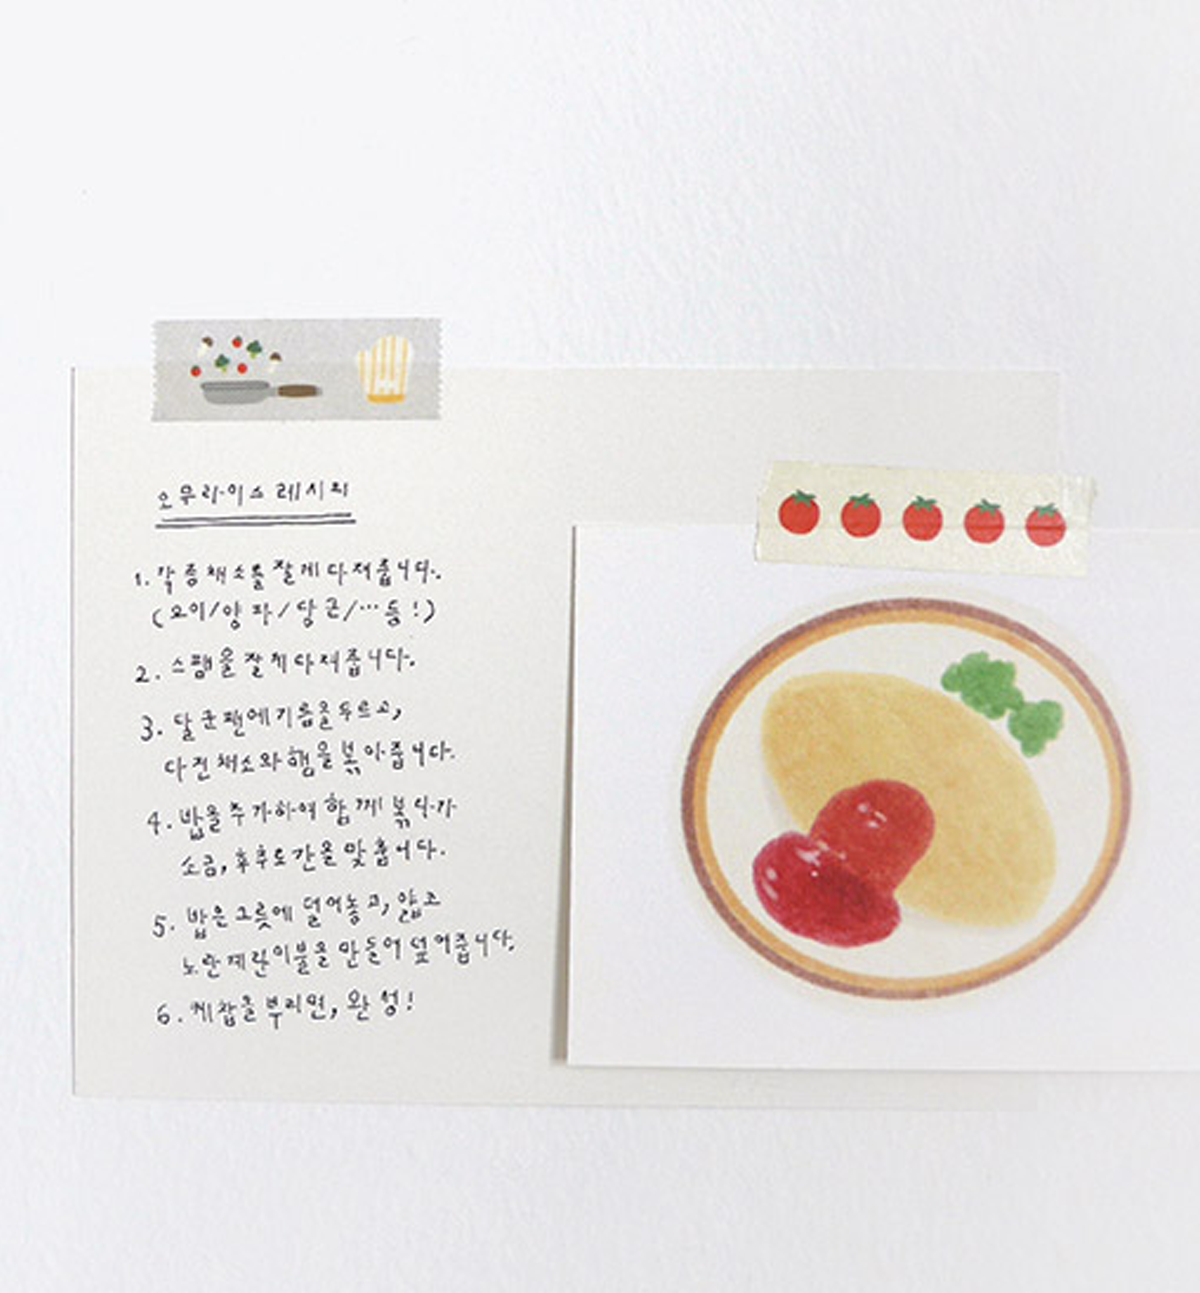 오무라이스 레시피
1. 각종 채소를 잘게 다져줍니다.
(오이/양파/당근/…등!)
2. 스팸을 잘게 다져줍니다.
3. 달군 팬에 기름을 두르고,
다진 채소와 햄을 볶아줍니다.
4. 밥을 추가하여 함께 볶다가
소금, 후추로 간을 맞춥니다.
5. 밥은 그릇에 덜어놓고, 얇고
노란 계란이불을 만들어 덮어줍니다.
6. 케찹을 뿌리면, 완성!